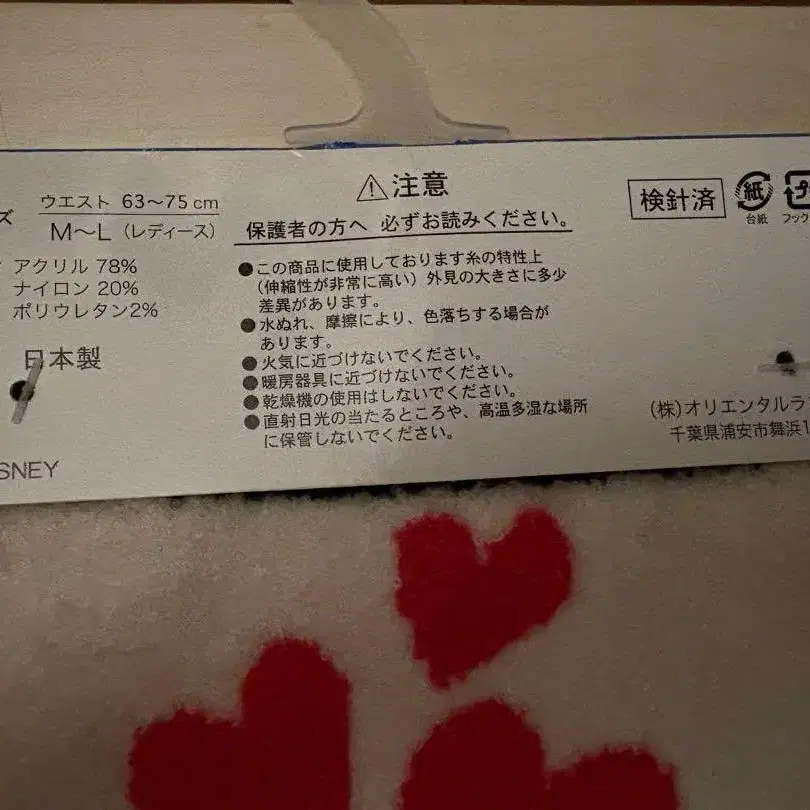 ズ
ウエスト 63〜75cm
M〜L（レディース）
アクリル 78%
ナイロン 20%
ポリウレタン2%
日本製
SNEY
⚠注意
保護者の方へ 必ずお読みください。
●この商品に使用しております糸の特性上
（伸縮性が非常に高い）外見の大きさに多少
差異があります。
●水ぬれ、摩擦により、色落ちする場合が
あります。
●火気に近づけないでください。
●暖房器具に近づけないでください。
●乾燥機の使用はしないでください。
●直射日光の当たるところや、高温多湿な場所
に保管しないでください。
検針済
紙
台紙
プ
フック
(株)オリエンタルラ
千葉県浦安市舞浜1